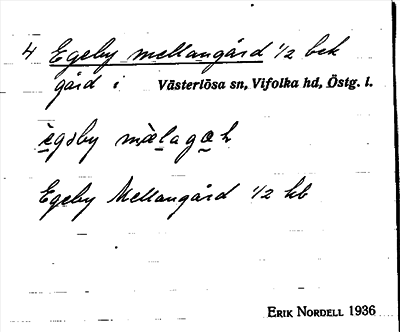 4 Egeby mellangård 1/2 bek
gård i Västerlösa sn, Vifolka hd, Östg. l.
ègəby mæ̀lagɷh
Egeby Mellangård 1/2 kb
ERIK NORDELL 1936